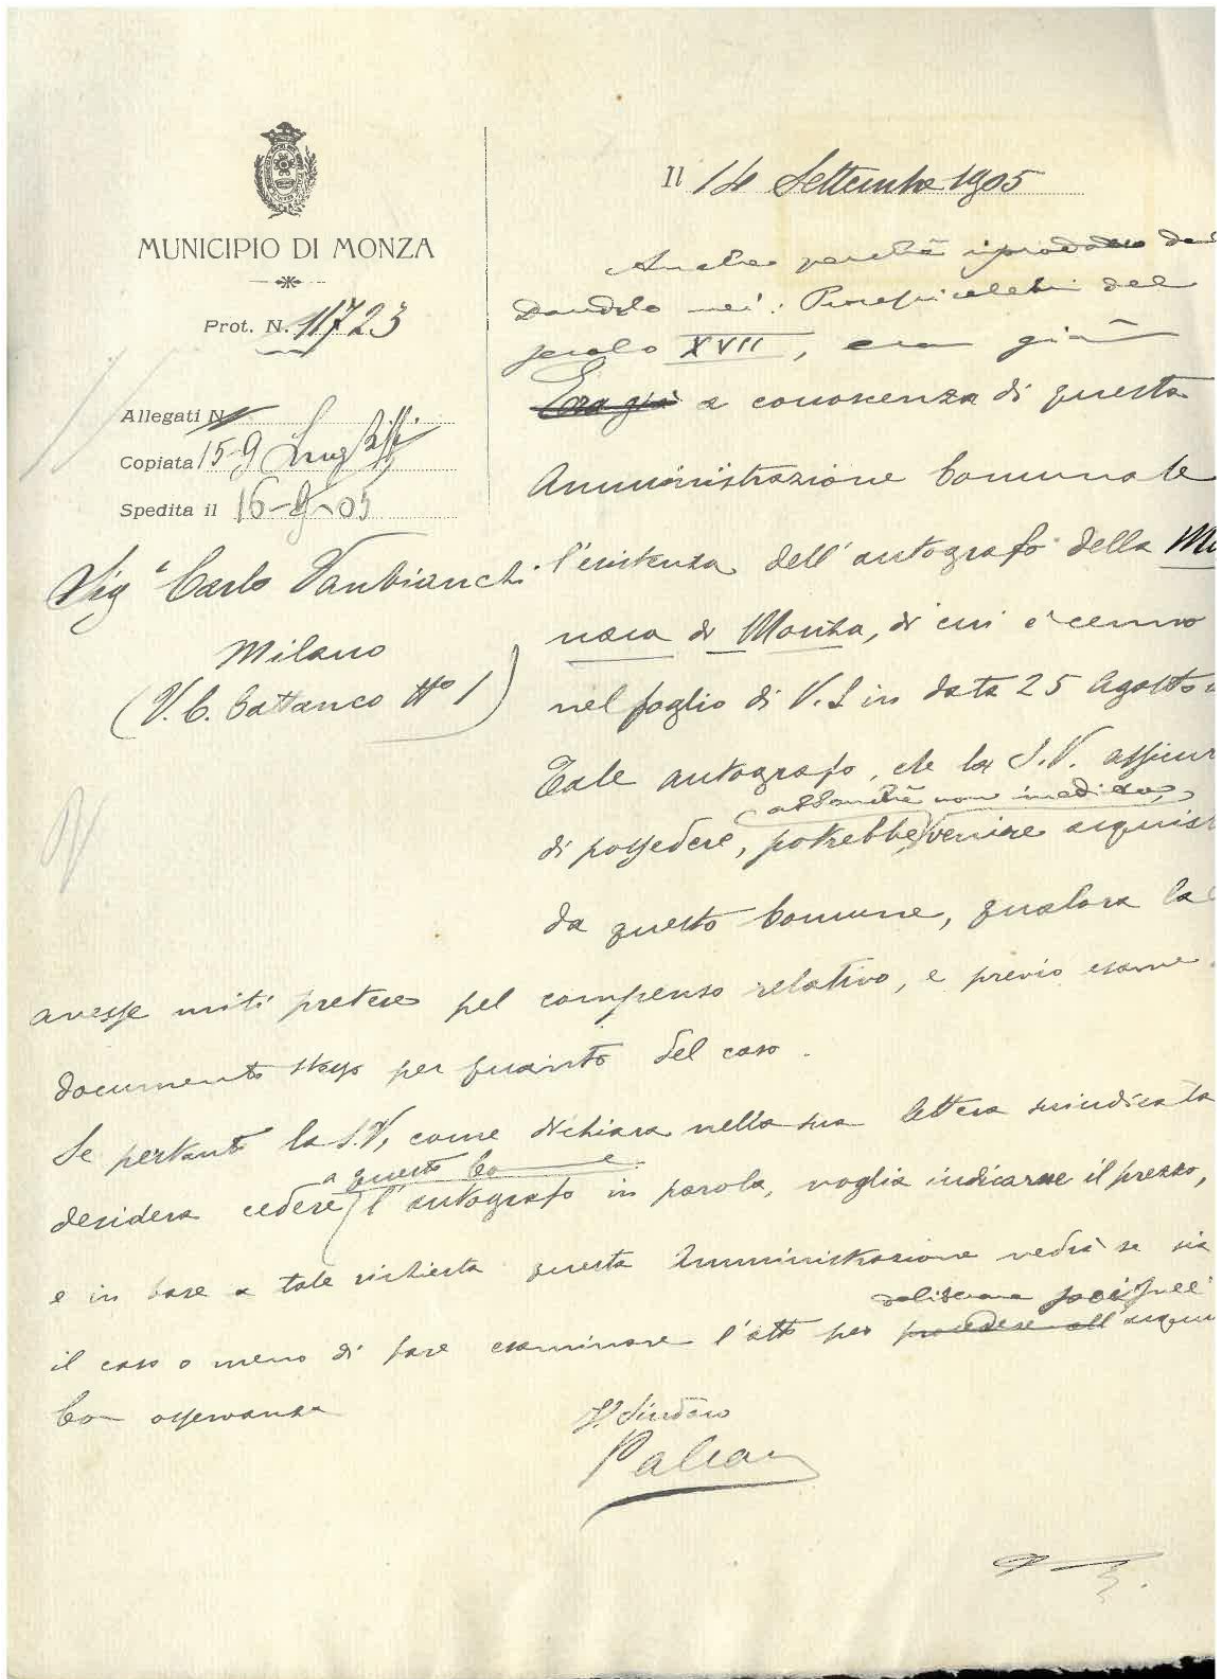 MUNICIPIO DI MONZA
Prot. N. 11723
Allegati N
Copiata 15-9
Spedita il 16-9-05
Sig Carlo Vanbianchi
Milano
(V. C. Cattaneo No 1)
Il 14 Settembre 1905
Anche perchè riprodotto dal
Dandolo nei: del
secolo XVII, era già
Era già a conoscenza di questa
Amministrazione Comunale
l'esistenza dell'autografo della Mo
naca di Monza, di cui è cenno
nel foglio di V.S in data 25 Agosto
Tale autografo, che la S.V. assicur
abbenchè non inedito,
di possedere, potrebbe venire acquist
da questo Comune, qualora la
avesse miti pretese pel compenso relativo, e previo esame
documento stesso per quanto del caso.
Se pertanto la S.V, come dichiara nella sua lettera suindicata
a questo Co e
desidera cedere l'autografo in parola, voglia indicarne il prezzo,
e in base a tale richiesta questa Amministrazione vedrà se sia
il caso o meno di fare esaminare l'atto per procedere all'acqui
Con osservanza
Il Sindaco